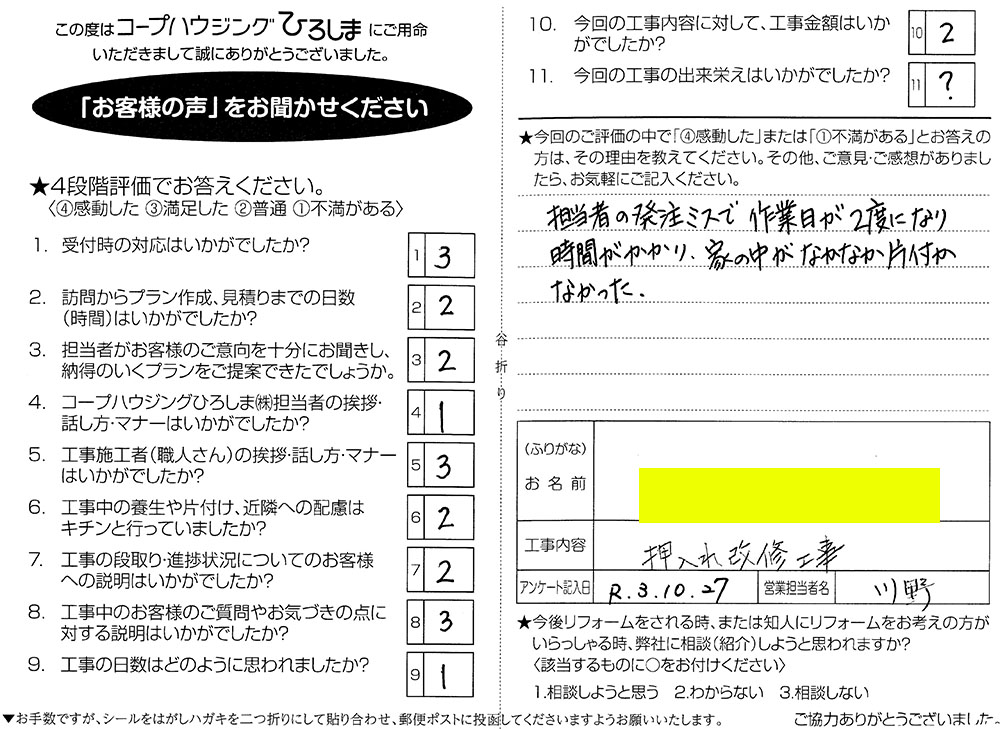 この度はコープハウジングひろしまにご用命
いただきまして誠にありがとうございました。
「お客様の声」をお聞かせください
★4段階評価でお答えください。
〈④感動した ③満足した ②普通 ①不満がある〉
1. 受付時の対応はいかがでしたか?
1 3
2. 訪問からプラン作成、見積りまでの日数
（時間）はいかがでしたか?
2 2
3. 担当者がお客様のご意向を十分にお聞きし、
納得のいくプランをご提案できたでしょうか。
3 2
4. コープハウジングひろしま㈱担当者の挨拶・
話し方・マナーはいかがでしたか?
4 1
5. 工事施工者（職人さん）の挨拶・話し方・マナー
はいかがでしたか?
5 3
6. 工事中の養生や片付け、近隣への配慮は
キチンと行っていましたか?
6 2
7. 工事の段取り・進捗状況についてのお客様
への説明はいかがでしたか?
7 2
8. 工事中のお客様のご質問やお気づきの点に
対する説明はいかがでしたか?
8 3
9. 工事の日数はどのように思われましたか?
9 1
▼お手数ですが、シールをはがしハガキを二つ折りにして貼り合わせ、郵便ポストに投函してくださいますようお願いいたします。
谷折り
10. 今回の工事内容に対して、工事金額はいか
がでしたか?
10 2
11. 今回の工事の出来栄えはいかがでしたか?
11 ?
★今回のご評価の中で「④感動した」または「①不満がある」とお答えの
方は、その理由を教えてください。その他、ご意見・ご感想がありまし
たら、お気軽にご記入ください。
担当者の発注ミスで作業日が2度になり
時間がかかり、家の中がなかなか片付か
なかった.
（ふりがな）
お名前
工事内容 押入れ改修工事
アンケート記入日 R.3.10.27 営業担当者名 川野
★今後リフォームをされる時、または知人にリフォームをお考えの方が
いらっしゃる時、弊社に相談（紹介）しようと思われますか?
〈該当するものに○をお付けください〉
1.相談しようと思う 2.わからない 3.相談しない
ご協力ありがとうございました。